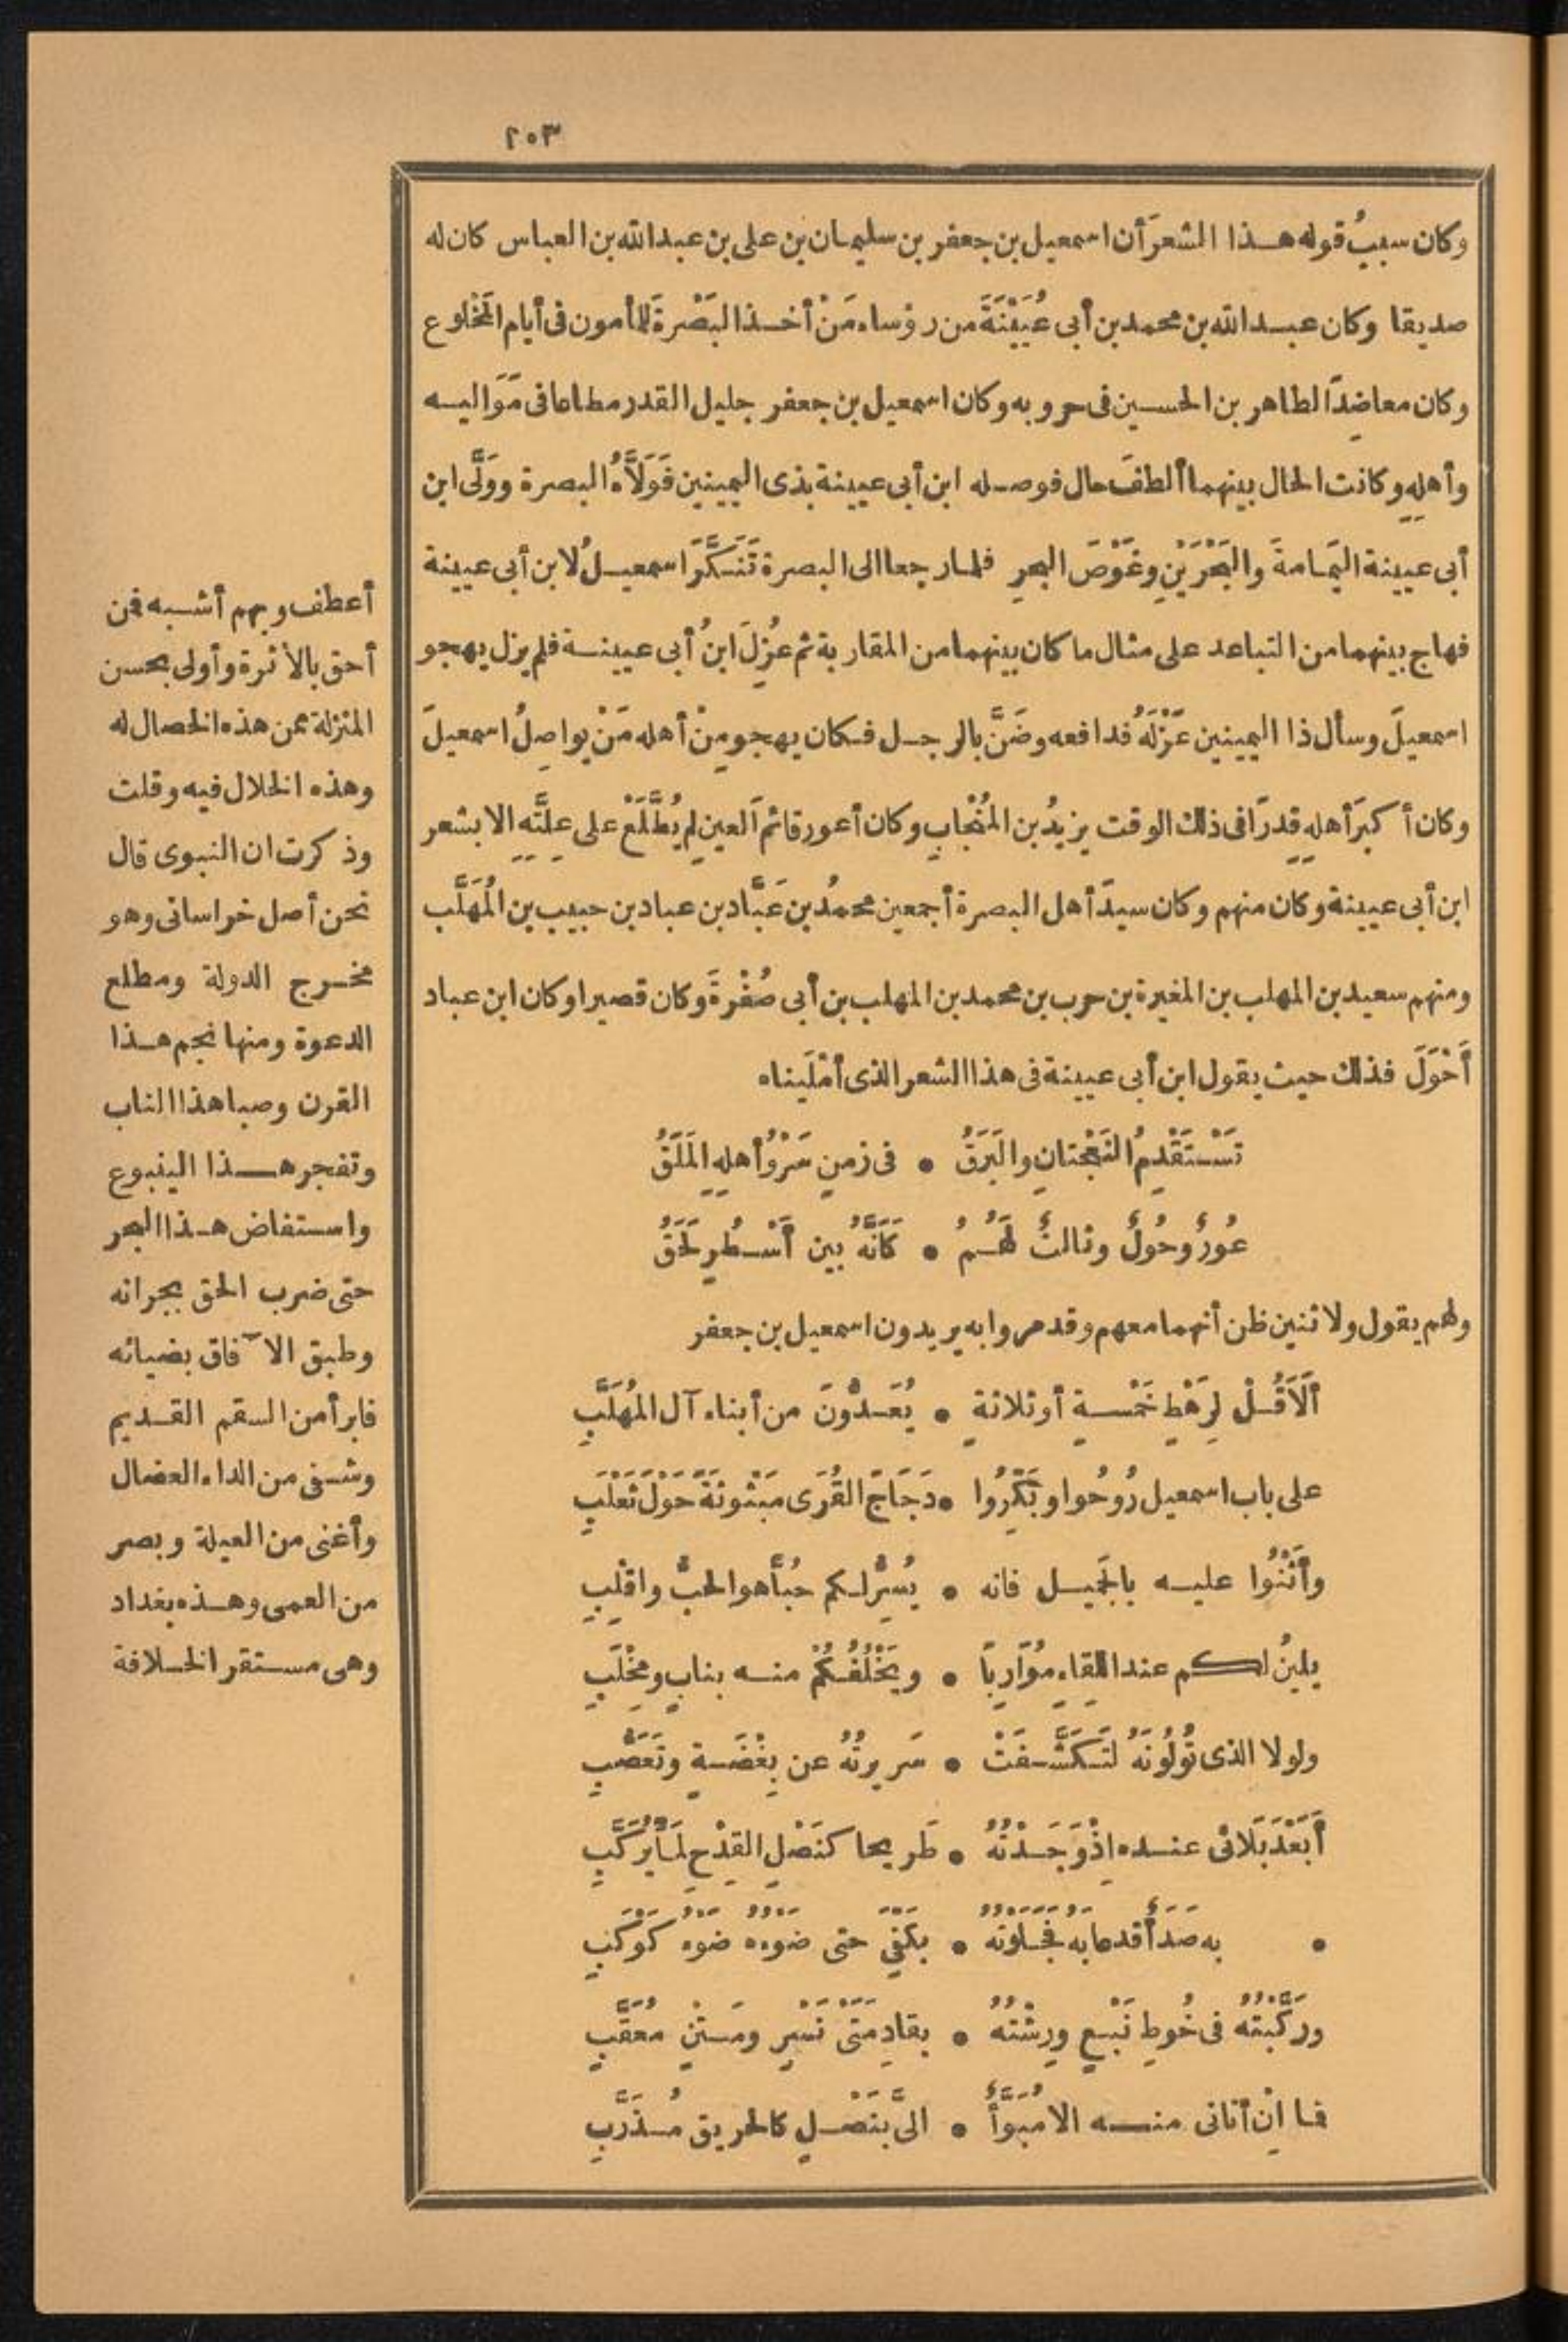 ٢٠٣
وكان سببُ قوله هذا الشعرَ أن اسمعيل بن جعفر بن سليمان بن على بن عبد الله بن العباس كان له
صديقا وكان عبد الله بن محمد بن أبى عُيَيْنَةَ من رؤساء مَنْ أخذ البَصْرةَ للمأمون فى أيام المَخْلوع
وكان معاضِدًا لطاهر بن الحسين فى حروبه وكان اسمعيل بن جعفر جليل القدر مطاعا فى مَوَاليه
وأهلِهِ وكانت الحال بينهما ألطفَ حال فوصله ابن أبى عيينة بذى اليمينين فَوَلَّاهُ البصرة ووَلَّى ابن
أبى عيينة اليَمامةَ والبَحْرَيْنِ وغَوْصَ البحرِ فلما رجعا الى البصرة تَنَكَّرَ اسمعيلُ لابن أبى عيينة
فهاج بينهما من التباعد على مثال ما كان بينهما من المقاربة ثم عُزِلَ ابنُ أبى عيينة فلم يزل يهجو
اسمعيلَ وسأل ذا اليمينين عَزْلَهُ فدافعه وضَنَّ بالرجل فكان يهجو مِنْ أهله مَنْ يواصِلُ اسمعيلَ
وكان أكبرَ أهلِهِ قدرًا فى ذلك الوقت يزيدُ بن المُنْجاب وكان أعور قائم العين لم يُطَّلَعْ على عِلَّتِهِ الا بشعر
ابن أبى عيينة وكان منهم وكان سيدَ أهل البصرة أجمعين محمدُ بن عَبَّاد بن عباد بن حبيب بن المُهَلَّب
ومنهم سعيد بن المهلب بن المغيرة بن حرب بن محمد بن المهلب بن أبى صُفْرةَ وكان قصيرا وكان ابن عباد
أَحْوَلَ فذلك حيث يقول ابن أبى عيينة فى هذا الشعر الذى أمْلَيناه
تَسْتَقْدِمُ النَعْجتانِ والبَرَقُ • فى زمنٍ سَرْوُ أهلِهِ المَلَقُ
عُورٌ وحُولٌ وثالثٌ لَهُمُ • كَأنَّهُ بين أَسْطُرٍ لَحَقُ
ولهم يقول ولاثنين ظن أنهما معهم وقد مروا به يريدون اسمعيل بن جعفر
أَلَا قُلْ لِرَهْطٍ خَمْسةٍ أو ثلاثةٍ • يُعَدُّونَ من أبناء آل المُهَلَّبِ
على باب اسمعيل رُوحُوا وبَكِّرُوا • دَجَاجَ القُرَى مَبْثُوثةً حَوْلَ ثَعْلَبِ
وأثْنُوا عليه بالجَميل فانه • يُسِرُّ لكم حُبًّا هو الحبُّ واقْلِبِ
يلينُ لكم عند اللِقاءِ مُوَارِبًا • ويَخْلُفُكُمْ منه بنابٍ ومِخْلَبِ
ولولا الذى تُولُونَهُ لَتَكَشَّفَتْ • سَريرتُهُ عن بِغْضةٍ وتَعَصُّبِ
أبَعْدَ بَلَائى عنده إذْ وَجَدْتُهُ • طَريحا كنَصْلِ القِدْحِ لَمَّا يُرَكَّبِ
• به صَدَأٌ قد عابَهُ فَجَلَوْتُهُ • بكَفِّىَ حتى ضَوءُهُ ضَوءُ كَوْكَبِ
ورَكَّبْتُهُ فى خُوطِ نَبْعٍ ورِشْتُهُ • بقادِمَتَىْ نَسْرٍ ومَتْنٍ مُعَقَّبِ
فما إنْ أتانى منه الا مُبَوَّأً • الىَّ بنَصْلٍ كالحريق مُذَرَّبِ
أعطف وبهم أشبه فمن
أحق بالأثرة وأولى بحسن
المنزلة ممن هذه الخصال له
وهذه الخلال فيه وقلت
وذكرت ان النبوى قال
نحن أصل خراسانى وهو
مخرج الدولة ومطلع
الدعوة ومنها نجم هذا
القرن وصبا هذا الناب
وتفجر هذا الينبوع
واستفاض هذا البحر
حتى ضرب الحق بجرانه
وطبق الآفاق بضيائه
فابرأ من السقم القديم
وشفى من الداء العضال
وأغنى من العيلة وبصر
من العمى وهذه بغداد
وهى مستقر الخلافة